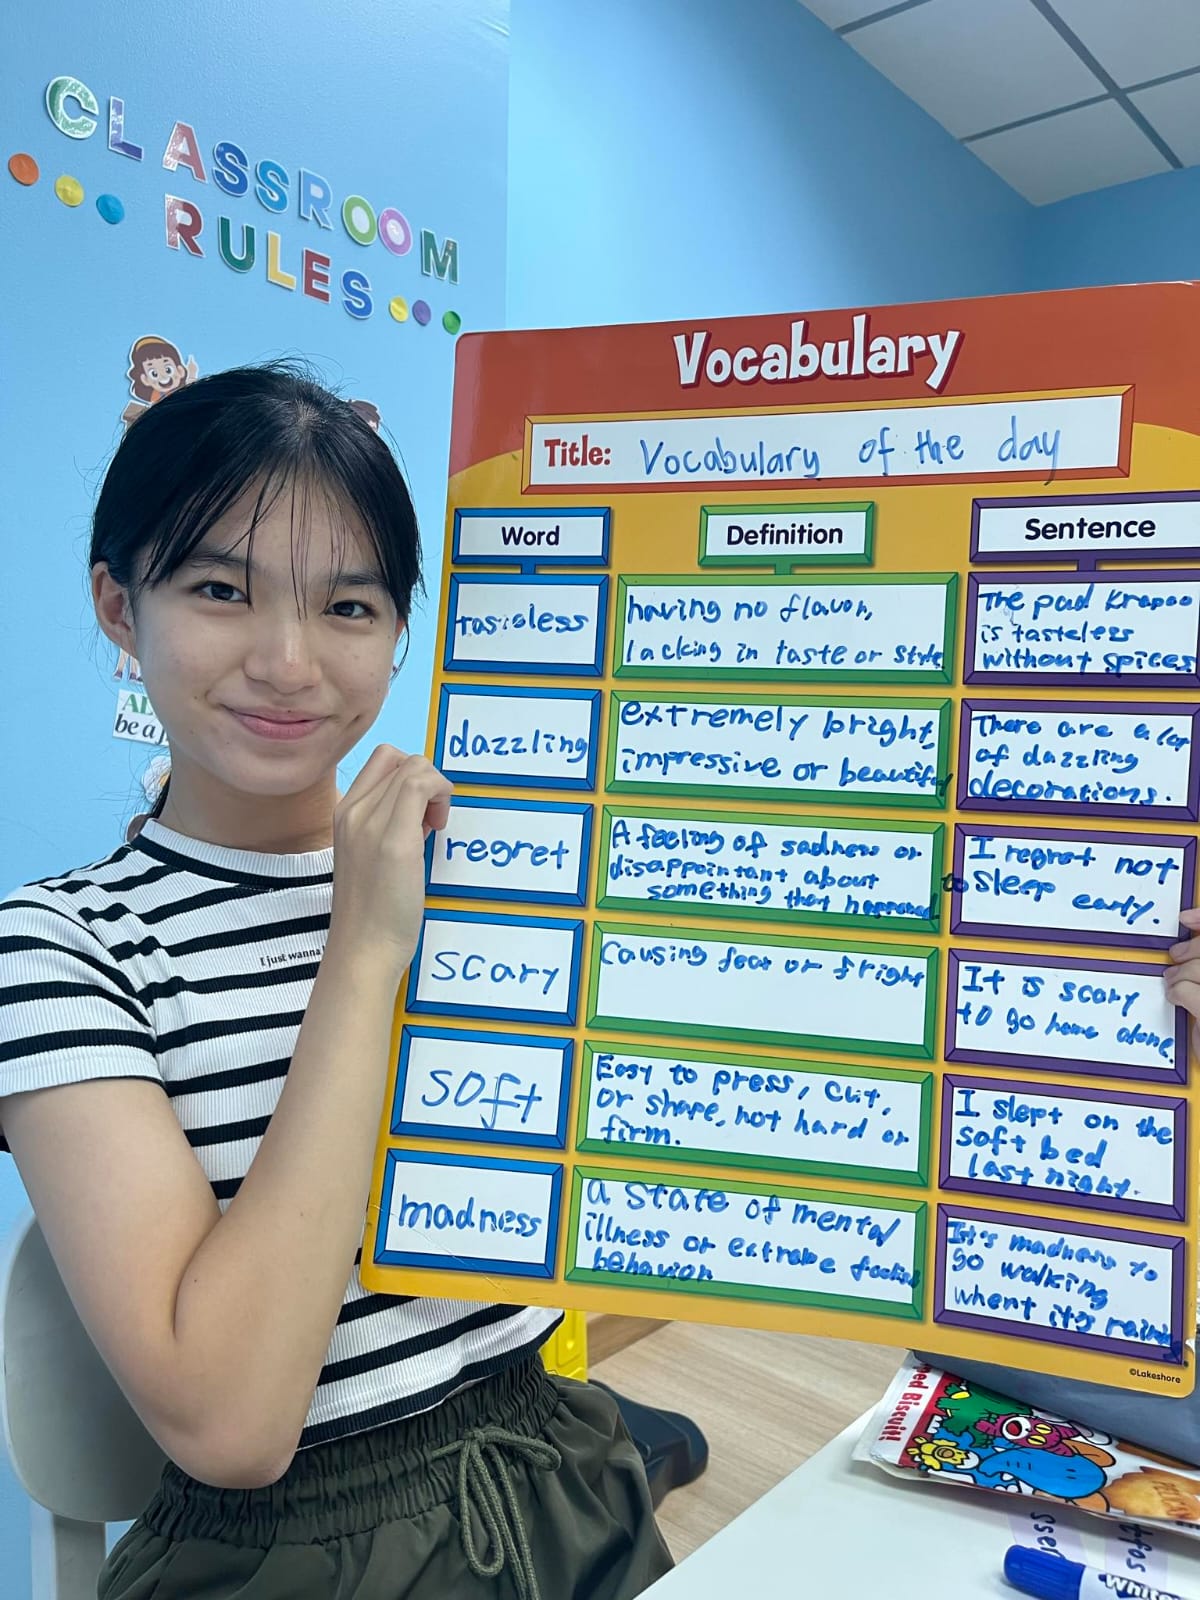 CLASSROOM
RULES
be a
I just wanna
Vocabulary
Title: Vocabulary of the day
Word
Definition
Sentence
tasteless
having no flavor,
lacking in taste or style
The pad Krapao
is tasteless
without spices
dazzling
extremely bright,
impressive or beautiful
There are a lot
of dazzling
decorations.
regret
A feeling of sadness or
disappointant about
something that happened
I regret not
to sleep early.
scary
Causing fear or fright
It is scary
to go home alone.
soft
Easy to press, cut,
or shape, not hard or
firm.
I slept on the
soft bed
last night.
madness
a state of mental
illness or extreme foolish
behavior
It's madness to
go walking
when it's
©Lakeshore
Biscuit!
White